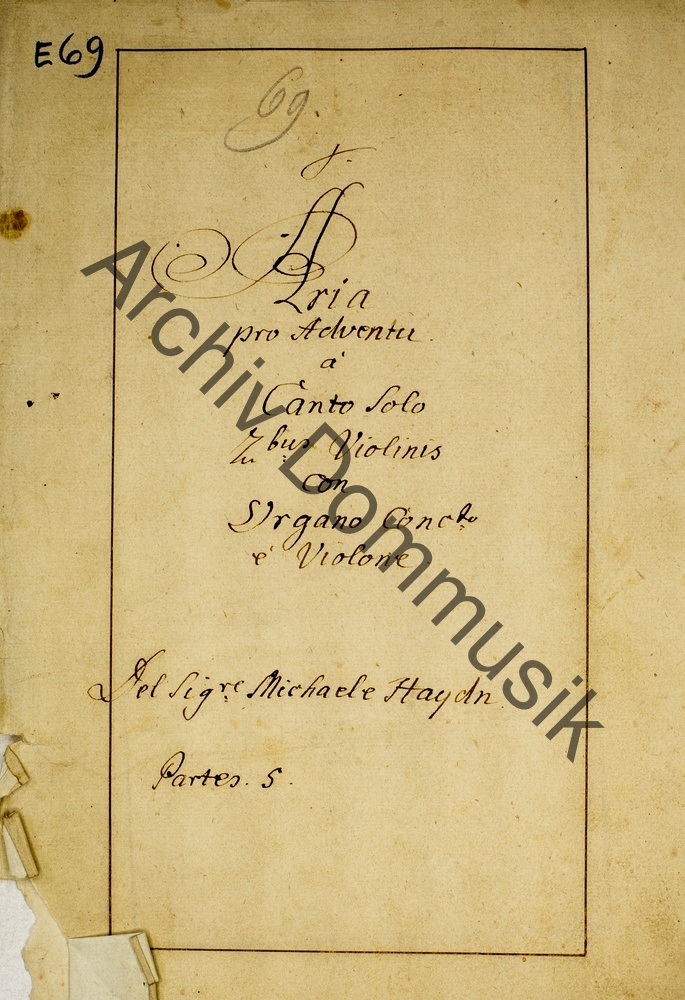 E69
69.
Aria
pro Adventu
a
Canto Solo
2bus Violinis
con
Organo Concto
e Violone
Del Sigre Michaele Haydn
Partes. 5.
Archiv Dommusik